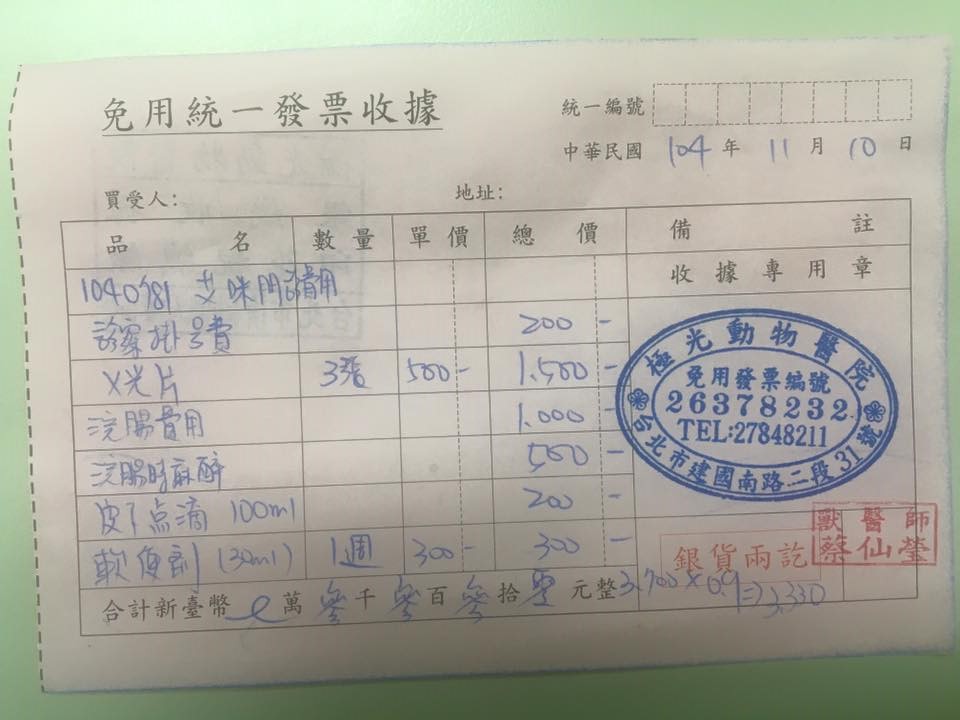 免用統一發票收據
統一編號
中華民國 104 年 11 月 10 日
買受人： 地址：
品名 數量 單價 總價 備註
1040981 艾咪門診費用 收據專用章
診察掛号費 200 -
X光片 3張 500 - 1,500 -
浣腸費用 1,000 -
浣腸時麻醉 500 -
皮下点滴 100ml 200 -
軟便劑 (30ml) 1週 300 - 300 -
合計新臺幣 萬 參 千 參 百 參 拾 零 元整 3,700 x 0.9 => 3,330
極光動物醫院
免用發票編號
26378232
TEL:27848211
台北市建國南路二段31號
銀貨兩訖
獸醫師
蔡仙瑩